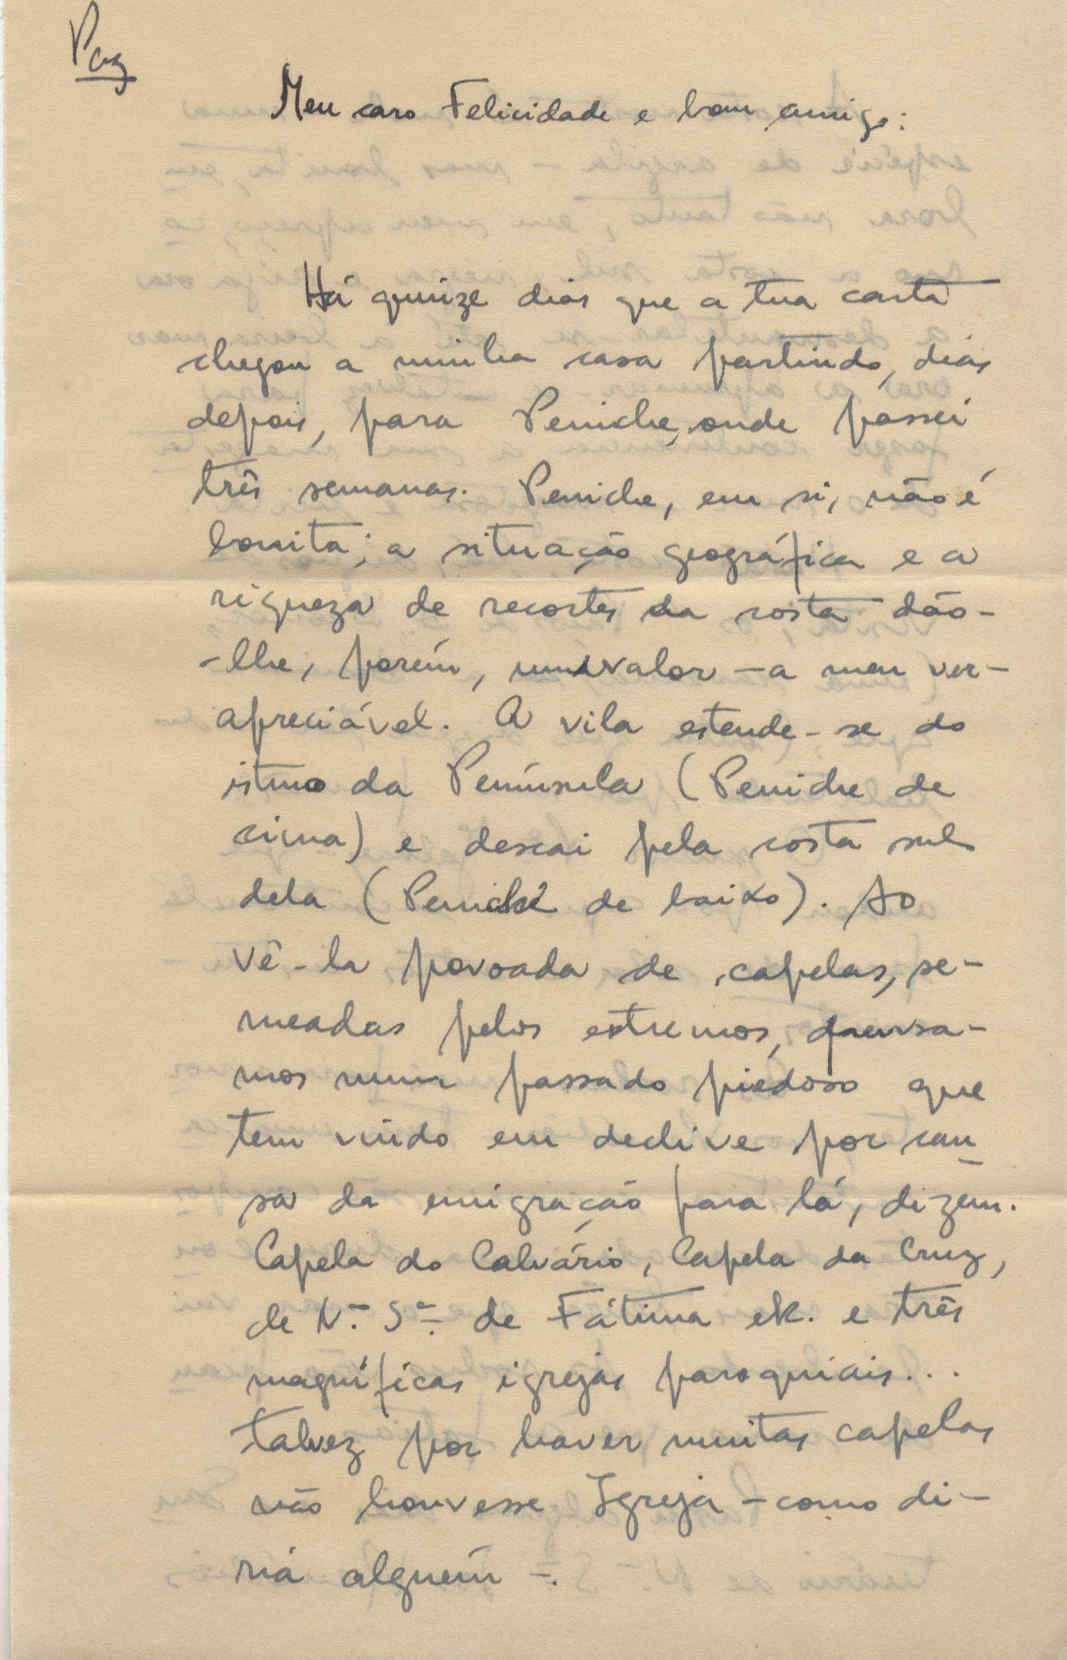 Paz
Meu caro Felicidade e bom amigo:
Há quinze dias que a tua carta
chegou a minha casa partindo, dias
depois, para Peniche, onde passei
três semanas. Peniche, em si, não é
bonita; a situação geográfica e a
riqueza de recortes da costa dão-
-lhe, porém, um valor - a meu ver -
apreciável. A vila estende-se do
istmo da Península (Peniche de
cima) e descai pela costa sul
dela (Peniche de baixo). Ao
vê-la povoada de capelas, se-
meadas pelos extremos, pensa-
mos num passado piedoso que
tem vindo em declive por cau
sa da emigração para lá, dizem.
Capela do Calvário, Capela da Cruz,
de N.ª S.ª de Fátima etc. e três
magníficas igrejas paroquiais...
talvez por haver muitas capelas
não houvesse Igreja - como di-
ria alguém -.